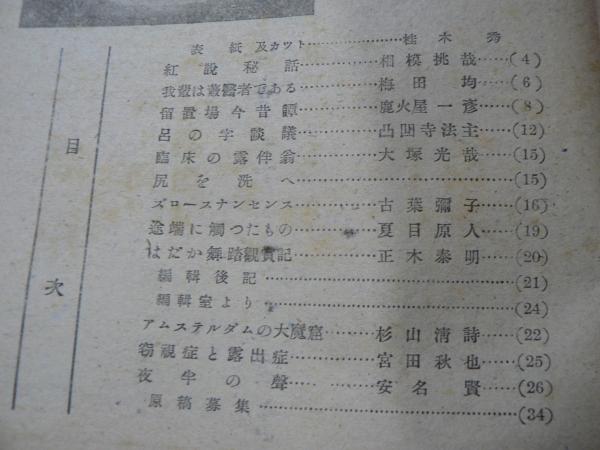 目次
表紙及カット……………桂木秀
紅説秘話……………相模挑哉……(4)
我輩は叢露者である………梅田均……(6)
留置場今昔譚……………鹿火屋一彦……(8)
呂の字談議……………凸凹寺法主……(12)
臨床の露伴翁……………大塚光哉……(15)
尻を洗へ……………(15)
ズロースナンセンス………古葉彌子……(16)
途端に觸つたもの…………夏目原人……(19)
はだか舞踏觀賞記…………正木泰明……(20)
編輯後記……………(21)
編輯室より……………(24)
アムステルダムの大魔窟………杉山清詩……(22)
窃視症と露出症……………宮田秋也……(25)
夜半の聲……………安名賢……(26)
原稿募集……………(34)